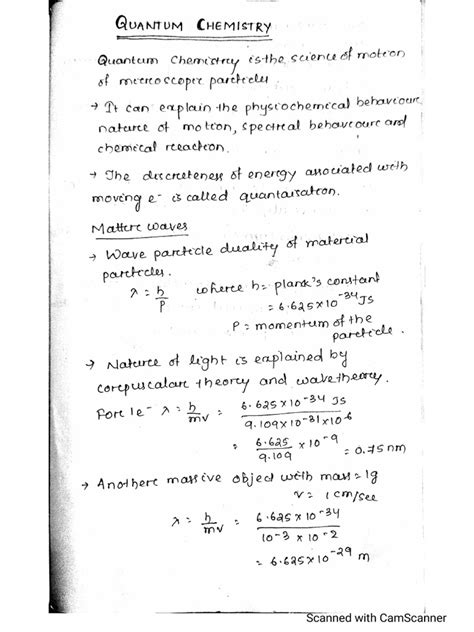 QUANTUM CHEMISTRY
Quantum Chemistry is the science of motion
of microscopic particles.
→ It can explain the physiochemical behaviour,
nature of motion, spectral behaviour and
chemical reaction.
→ The discreteness of energy associated with
moving e⁻ is called quantaisation.
Matter waves
→ Wave particle duality of material
particles.
λ = h/p where h = plank's constant
= 6.625×10⁻³⁴ JS
P = momentum of the
particle.
→ Nature of light is explained by
corpuscular theory and wave theory.
For 1e⁻ λ = h/mv = 6.625×10⁻³⁴ JS / 9.109×10⁻³¹×10⁶
= 6.625/9.109 × 10⁻⁹ = 0.75 nm
→ Another massive object with mass = 1g
v = 1 cm/sec
λ = h/mv = 6.625 × 10⁻³⁴ / 10⁻³ × 10⁻²
= 6.625×10⁻²⁹ m
Scanned with CamScanner